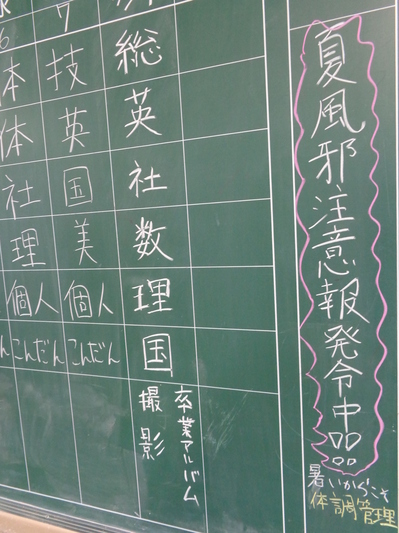 夏風邪注意報発令中!!
暑いからこそ
体調管理
総
英
社
数
理
国
卒業アルバム
撮影
技
英
国
美
個人
こんだん
6
体
体
社
理
個人
こんだん
ん